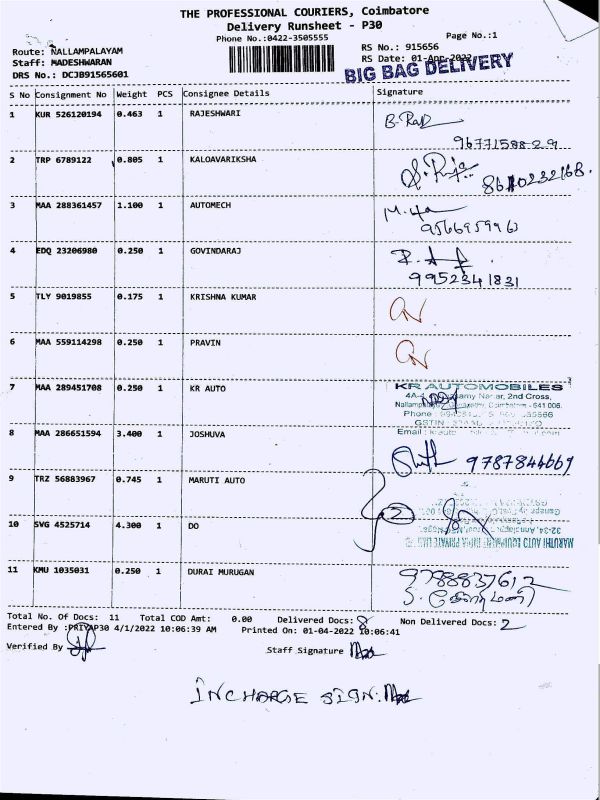 THE PROFESSIONAL COURIERS, Coimbatore
Delivery Runsheet - P30
Phone No.:0422-3505555
Page No.:1
Route: NALLAMPALAYAM
RS No.: 915656
Staff: MADESHWARAN
RS Date: 01-Apr-2022
DRS No.: DCJB91565601
BIG BAG DELIVERY
S No Consignment No Weight PCS Consignee Details Signature
1 KUR 526120194 0.463 1 RAJESHWARI
9677158829
2 TRP 6789122 0.805 1 KALOAVARIKSHA
3 MAA 288361457 1.100 1 AUTOMECH
4 EDQ 23206980 0.250 1 GOVINDARAJ
9952341831
5 TLY 9019855 0.175 1 KRISHNA KUMAR
6 MAA 559114298 0.250 1 PRAVIN
7 MAA 289451708 0.250 1 KR AUTO
KR AUTOMOBILES
2nd Cross,
Coimbatore - 641 006.
Phone :
GSTIN :
Email :
8 MAA 286651594 3.400 1 JOSHUVA
9787844669
9 TRZ 56883967 0.745 1 MARUTI AUTO
2
10 SVG 4525714 4.300 1 DO
MARUTHI AUTO EQUIPMENT INDIA PRIVATE LIMITED
11 KMU 1035031 0.250 1 DURAI MURUGAN
9788837612
Total No. Of Docs: 11 Total COD Amt: 0.00 Delivered Docs: 8 Non Delivered Docs: 2
Entered By :PRIYAP30 4/1/2022 10:06:39 AM Printed On: 01-04-2022 10:06:41
Verified By
Staff Signature
INCHARGE SIGN: